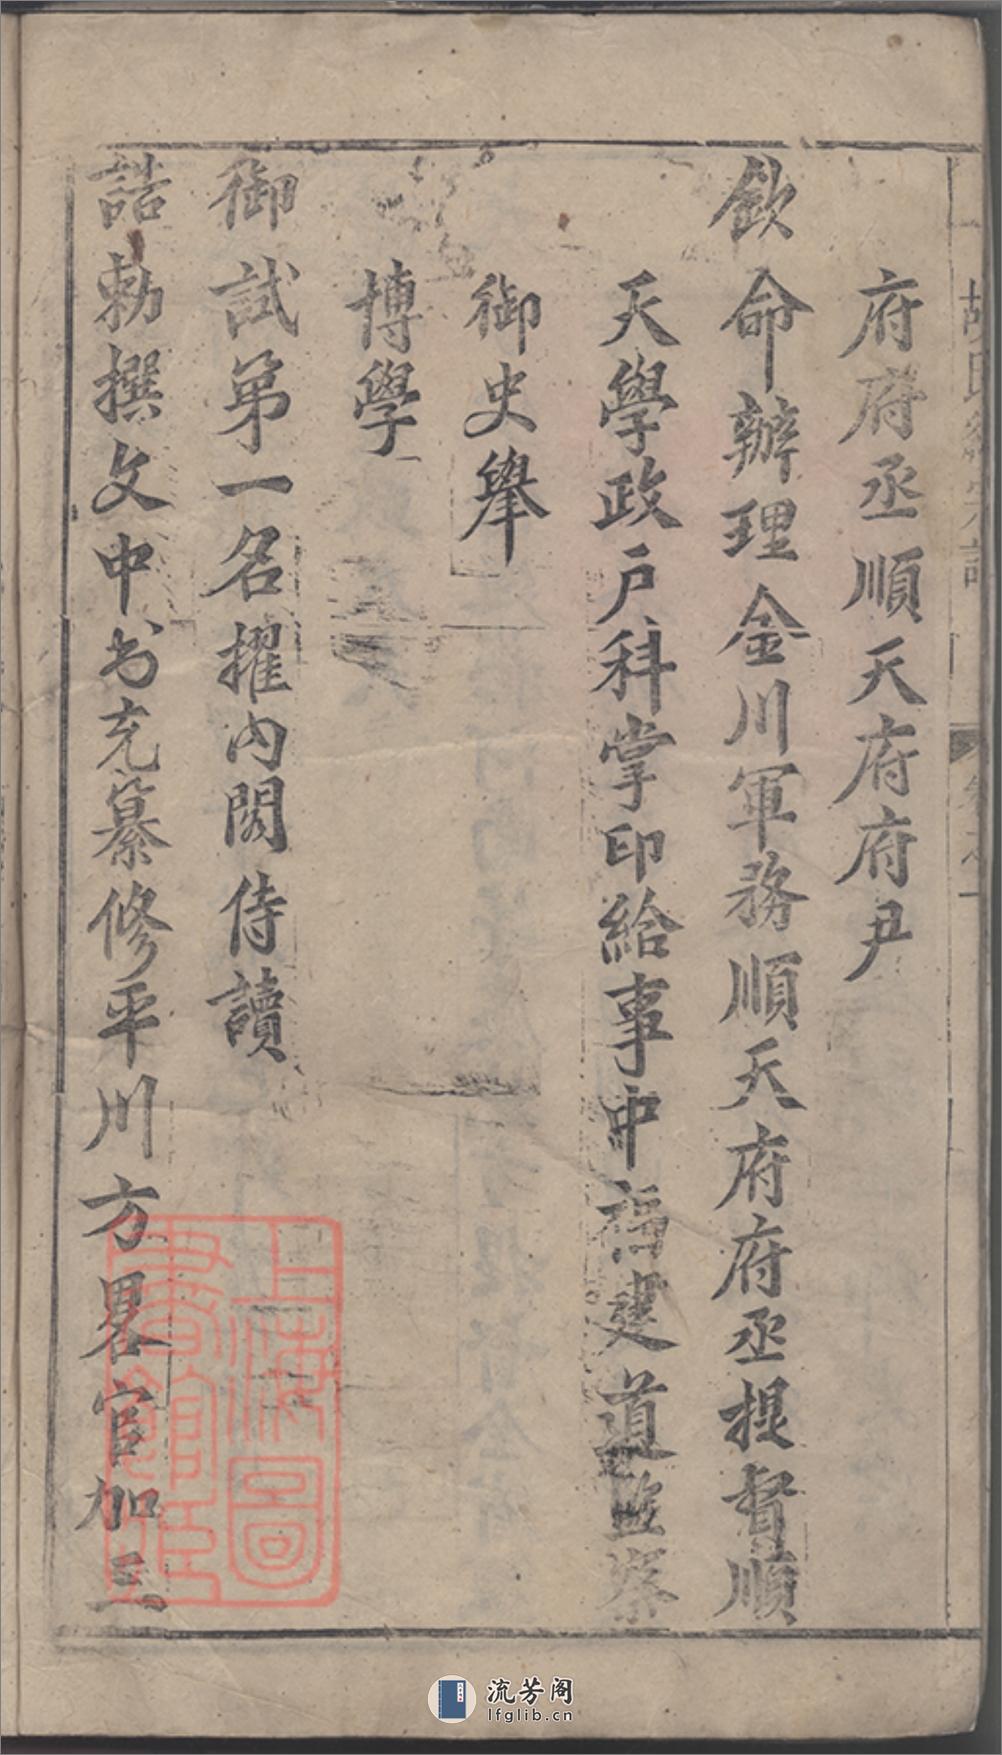 府府丞順天府府尹
欽命辦理金川軍務順天府府丞提督順
天學政戶科掌印給事中福建道監察
御史舉
博學
御試第一名擢內閣侍讀
誥勅撰文中書充纂修平川方畧官加三
上海圖
書館藏
流芳阁
lfglib.cn